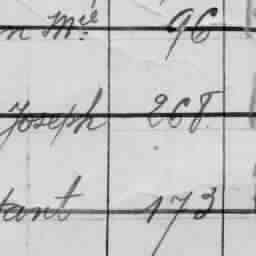 n Mce 96
Joseph 268
tant 173